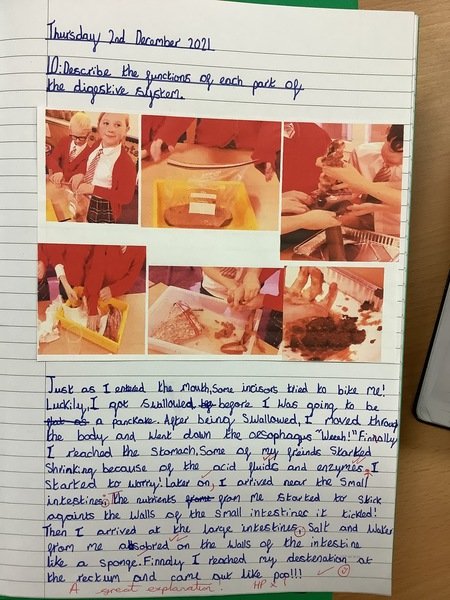 Thursday 2nd December 2021
LO: Describe the functions of each part of
the digestive system.
Just as I entered the mouth, Some incisors tried to bike me!
Luckily, I got swallowed before I was going to be
a panckake. After being Swallowed, I moved through
the body and went down the oesophagus "Weeh!" Finnally
I reached the Stomach, Some of my friends Started
Shrinking because of the acid fluids and enzymes. I
started to worry! Later on, I arrived near the Small
intestines. The nutrients from me started to Stick
againts the Walls of the Small intestines it tickled!
Then I arrived at the large intestines. Salt and Water
from me absobred on the Walls of the intestine
like a sponge. Finnaly I reached my destenation at
the rectium and came out like pop!!!
A great explanation! HP x 1